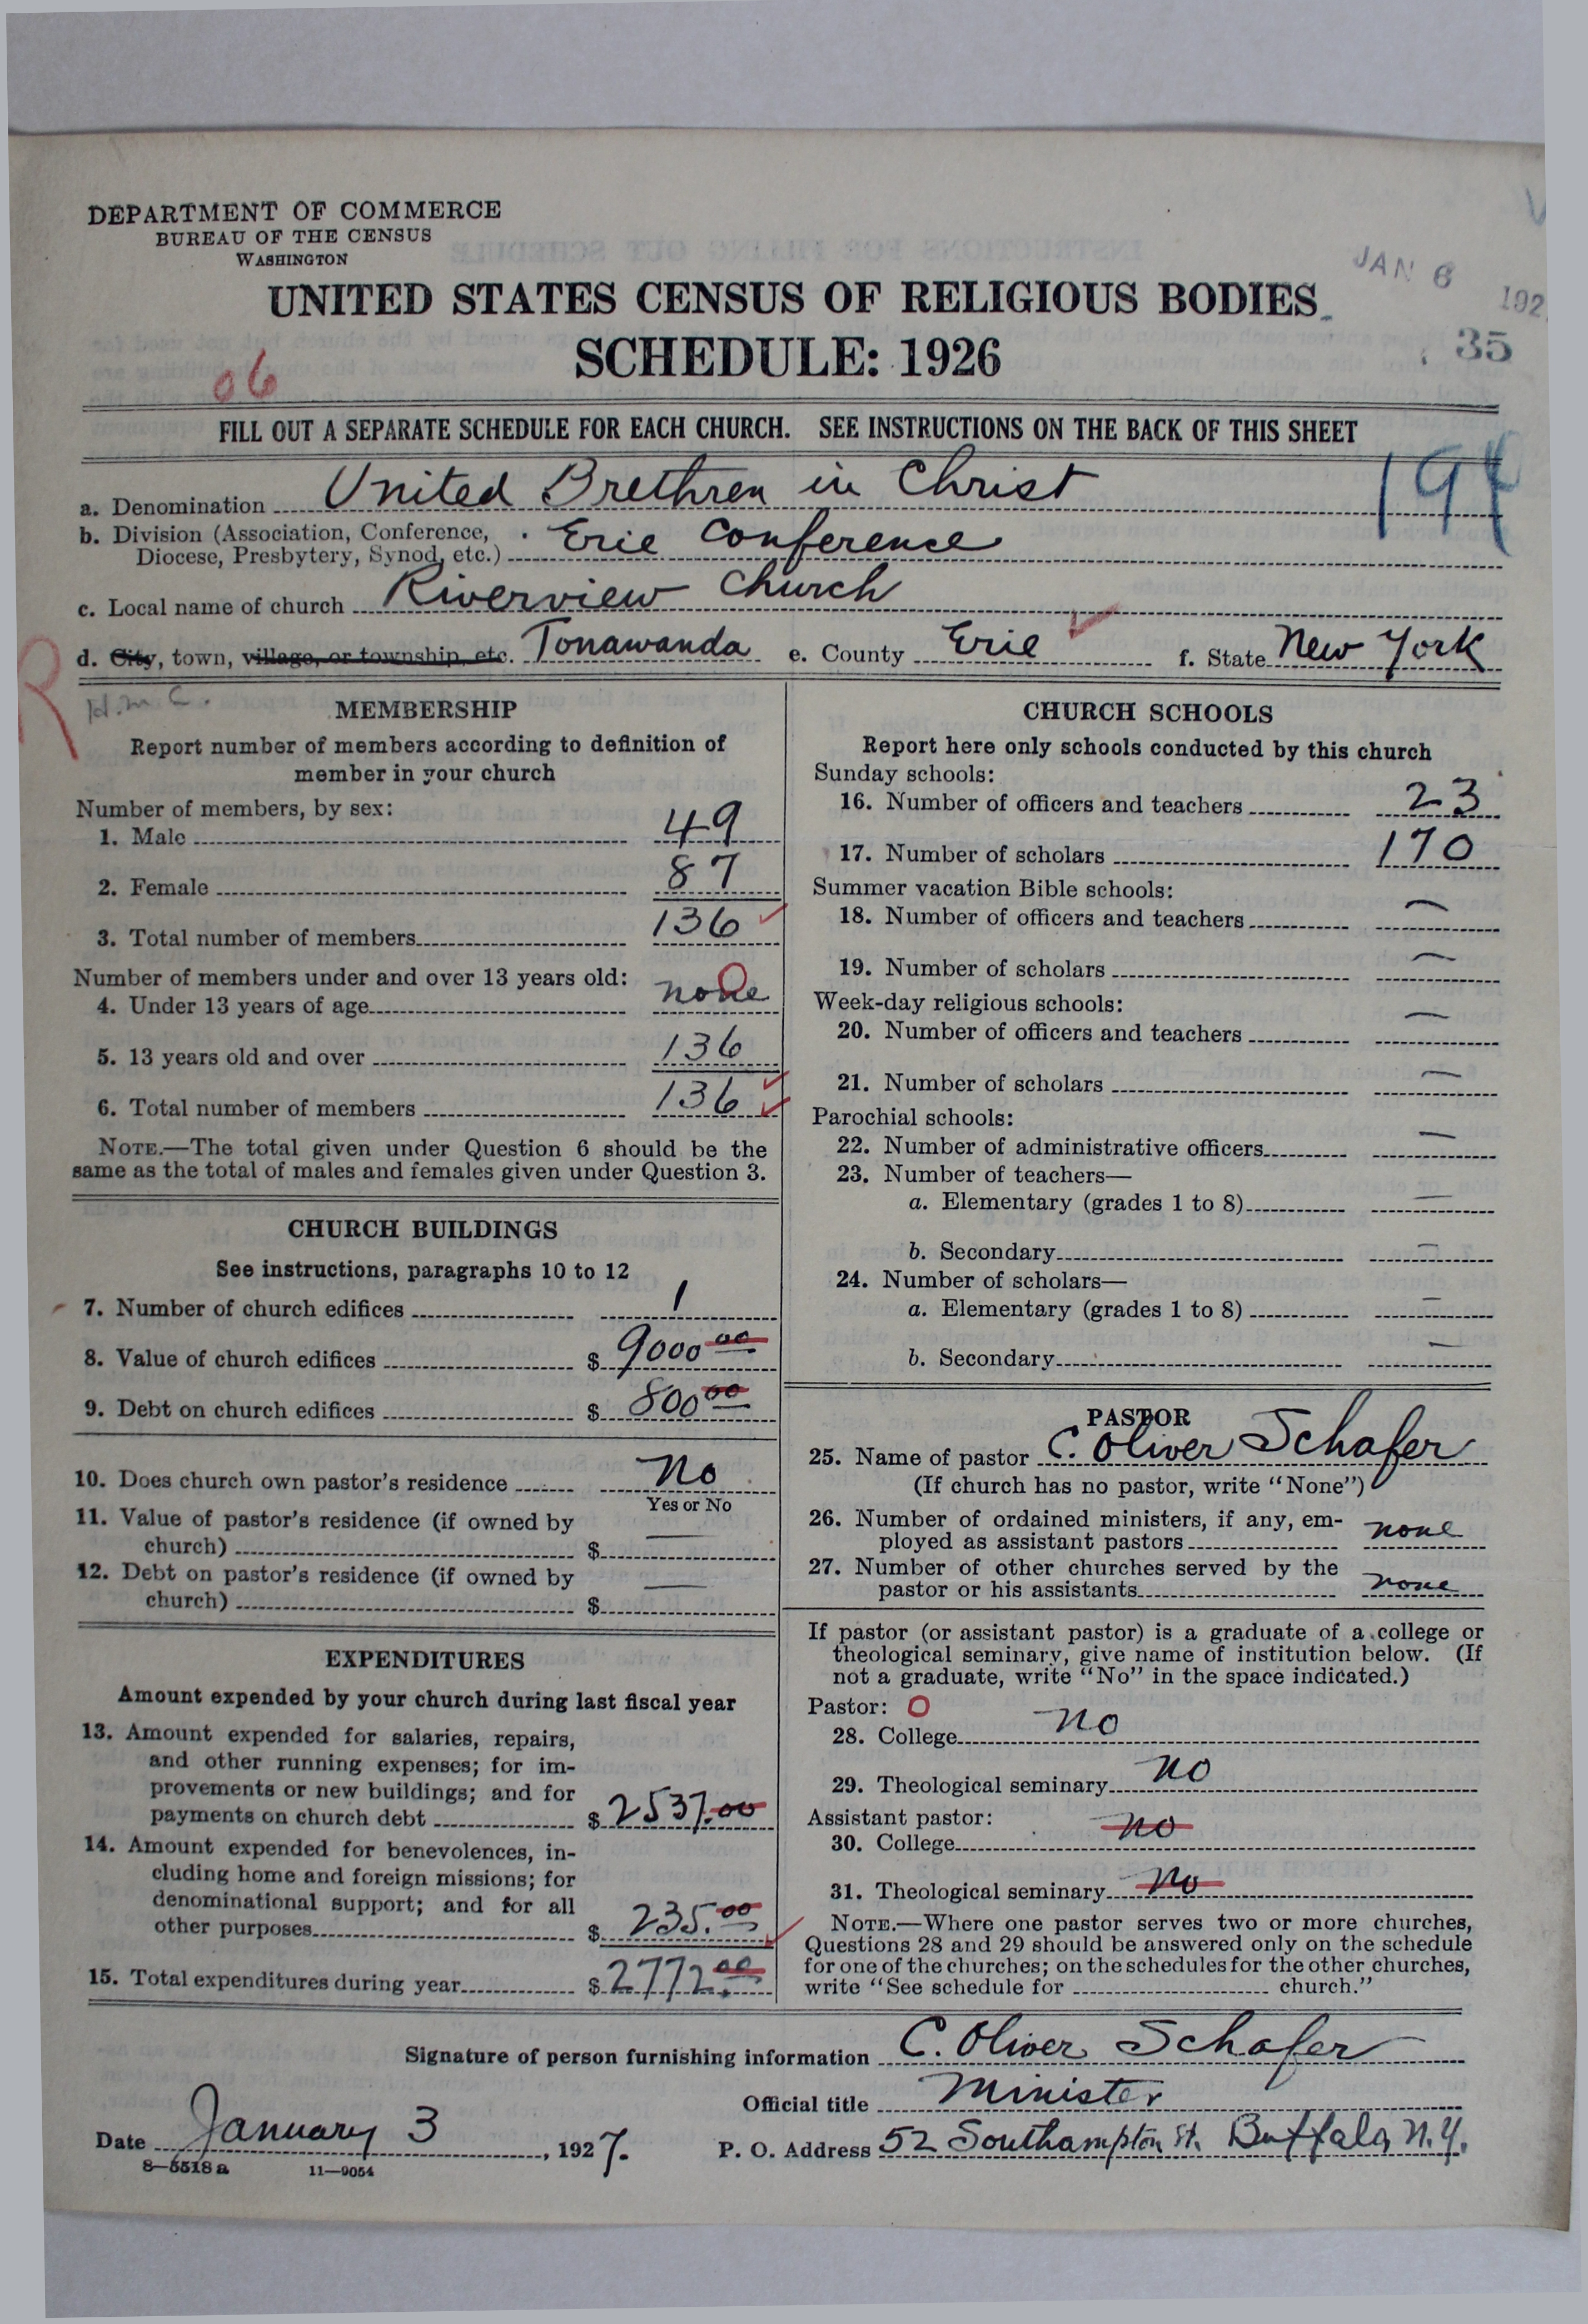 DEPARTMENT OF COMMERCE
BUREAU OF THE CENSUS
WASHINGTON
JAN 6 192
UNITED STATES CENSUS OF RELIGIOUS BODIES
35
SCHEDULE: 1926
06
FILL OUT A SEPARATE SCHEDULE FOR EACH CHURCH. SEE INSTRUCTIONS ON THE BACK OF THIS SHEET
a. Denomination United Brethren in Christ
b. Division (Association, Conference, Diocese, Presbytery, Synod, etc.) Erie Conference
c. Local name of church Riverview Church
d. City, town, village, or township, etc. Tonawanda e. County Erie f. State New York
R
H.M.C.
MEMBERSHIP
Report number of members according to definition of
member in your church
Number of members, by sex:
1. Male 49
2. Female 87
3. Total number of members 136
Number of members under and over 13 years old:
4. Under 13 years of age none 0
5. 13 years old and over 136
6. Total number of members 136
NOTE.—The total given under Question 6 should be the
same as the total of males and females given under Question 3.
CHURCH BUILDINGS
See instructions, paragraphs 10 to 12
7. Number of church edifices 1
8. Value of church edifices $ 9000 00
9. Debt on church edifices $ 800 00
10. Does church own pastor's residence No
Yes or No
11. Value of pastor's residence (if owned by
church) $ —
12. Debt on pastor's residence (if owned by
church) $ —
EXPENDITURES
Amount expended by your church during last fiscal year
13. Amount expended for salaries, repairs,
and other running expenses; for im-
provements or new buildings; and for
payments on church debt $ 2537.00
14. Amount expended for benevolences, in-
cluding home and foreign missions; for
denominational support; and for all
other purposes $ 235.00
15. Total expenditures during year $ 2772.00
CHURCH SCHOOLS
Report here only schools conducted by this church
Sunday schools:
16. Number of officers and teachers 23
17. Number of scholars 170
Summer vacation Bible schools:
18. Number of officers and teachers —
19. Number of scholars —
Week-day religious schools:
20. Number of officers and teachers —
21. Number of scholars —
Parochial schools:
22. Number of administrative officers —
23. Number of teachers—
a. Elementary (grades 1 to 8) —
b. Secondary —
24. Number of scholars—
a. Elementary (grades 1 to 8) —
b. Secondary —
PASTOR
25. Name of pastor C. Oliver Schafer
(If church has no pastor, write "None")
26. Number of ordained ministers, if any, em-
ployed as assistant pastors none
27. Number of other churches served by the
pastor or his assistants none
If pastor (or assistant pastor) is a graduate of a college or
theological seminary, give name of institution below. (If
not a graduate, write "No" in the space indicated.)
Pastor: 0
28. College no
29. Theological seminary no
Assistant pastor:
30. College no
31. Theological seminary No
NOTE.—Where one pastor serves two or more churches,
Questions 28 and 29 should be answered only on the schedule
for one of the churches; on the schedules for the other churches,
write "See schedule for church."
Signature of person furnishing information C. Oliver Schafer
Official title Minister
Date January 3, 1927. P. O. Address 52 Southampton St. Buffalo, N.Y.
8—5518 a 11—9054